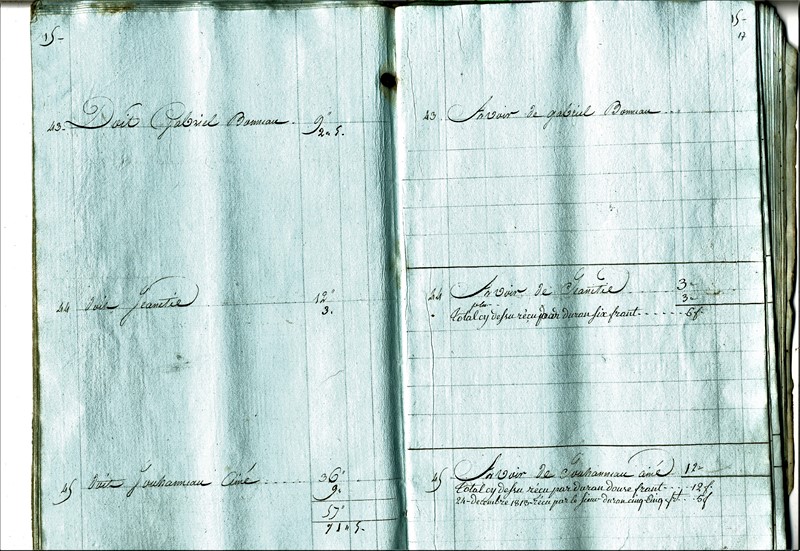 15-
43- Doit Gabriel Bonneau 9"
2" 5.
44 doit Jeanetie 12"
3.
45 doit Jouhanneau ainé 36"
9.
57"
71" 5.
15-
17
43 Avoir de gabriel Bonneau
44 Avoir de Jeanetie 3"
3"
total cy desu récu par duran six frant 6f.
45 Avoir de Jouhanneau ainé 12"
total cy desu récu par duran douse frant 12f.
24 decembre 1813 récu par le sieur duran cinq